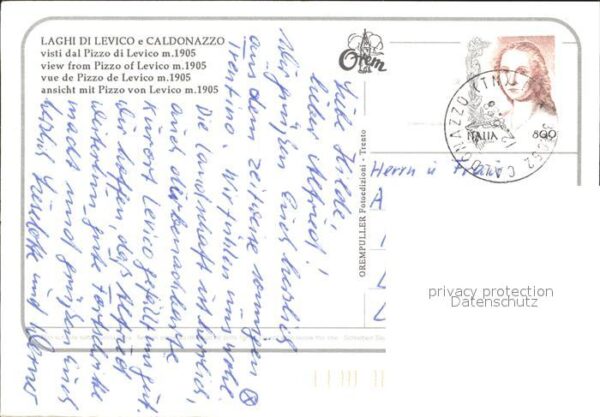 LAGHI DI LEVICO e CALDONAZZO
visti dal Pizzo di Levico m.1905
view from Pizzo of Levico m.1905
vue de Pizzo de Levico m.1905
ansicht mit Pizzo von Levico m.1905
Orem
ITALIA 800
CALDONAZZO (TN)
OREMPULLER Fotoedizioni - Trento
Herrn u Frau
privacy protection
Datenschutz
Liebe Hilde,
lieber Alfried!
Wir grüßen Euch herzlich
aus dem zeitweise sonnigen
Trentino. Wir fühlen uns wohl.
Die Landschaft ist herrlich,
auch der benachbarte
Kurort Levico gefällt uns gut.
Wir hoffen, daß Alfried
weiterhin gute Fortschritte
macht und grüßen Euch
herzlich Liselotte und Werner